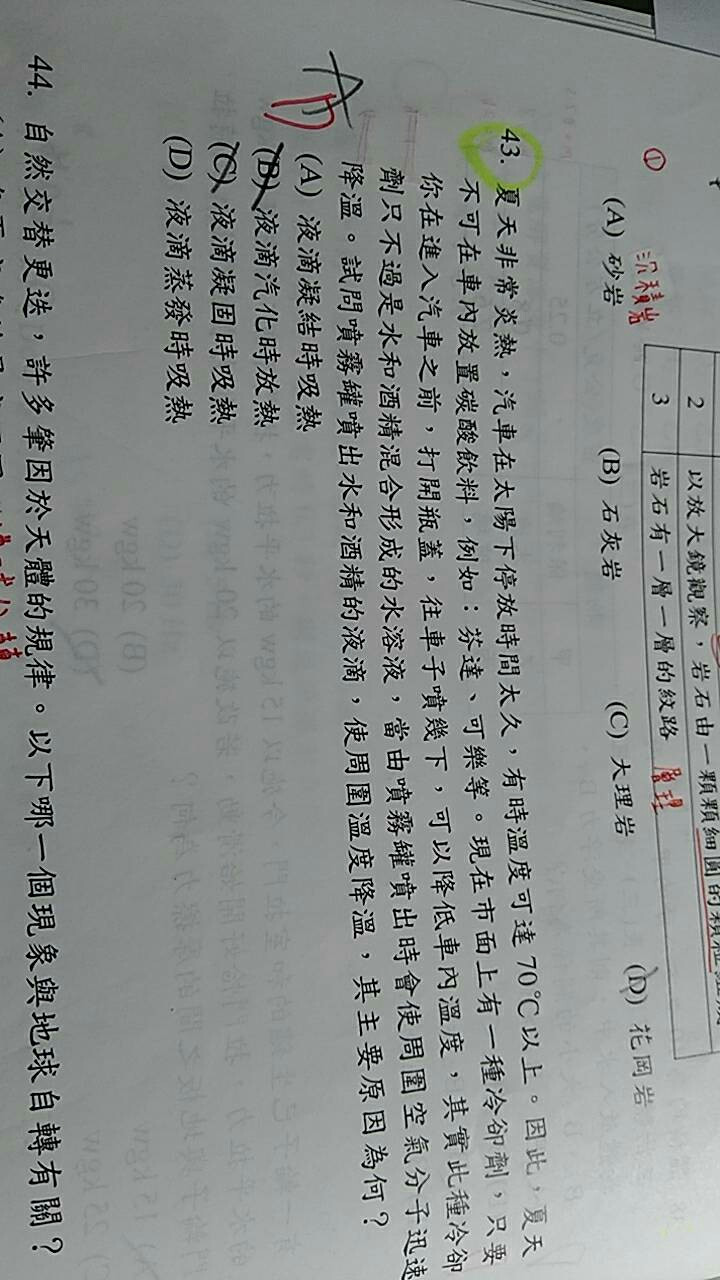 2 以放大鏡觀察，岩石由一顆顆細圓的顆粒
3 岩石有一層一層的紋路 層理
① 沉積岩
(A) 砂岩 (B) 石灰岩 (C) 大理岩 (D) 花岡岩
43. 夏天非常炎熱，汽車在太陽下停放時間太久，有時溫度可達 70℃以上。因此，夏天
不可在車內放置碳酸飲料，例如：芬達、可樂等。現在市面上有一種冷卻劑，只要
你在進入汽車之前，打開瓶蓋，往車子噴幾下，可以降低車內溫度，其實此種冷卻
劑只不過是水和酒精混合形成的水溶液，當由噴霧罐噴出時會使周圍空氣分子迅速
降溫。試問噴霧罐噴出水和酒精的液滴，使周圍溫度降溫，其主要原因為何？
A
D
(A) 液滴凝結時吸熱
(B) 液滴汽化時放熱
(C) 液滴凝固時吸熱
(D) 液滴蒸發時吸熱
44. 自然交替更迭，許多肇因於天體的規律。以下哪一個現象與地球自轉有關？